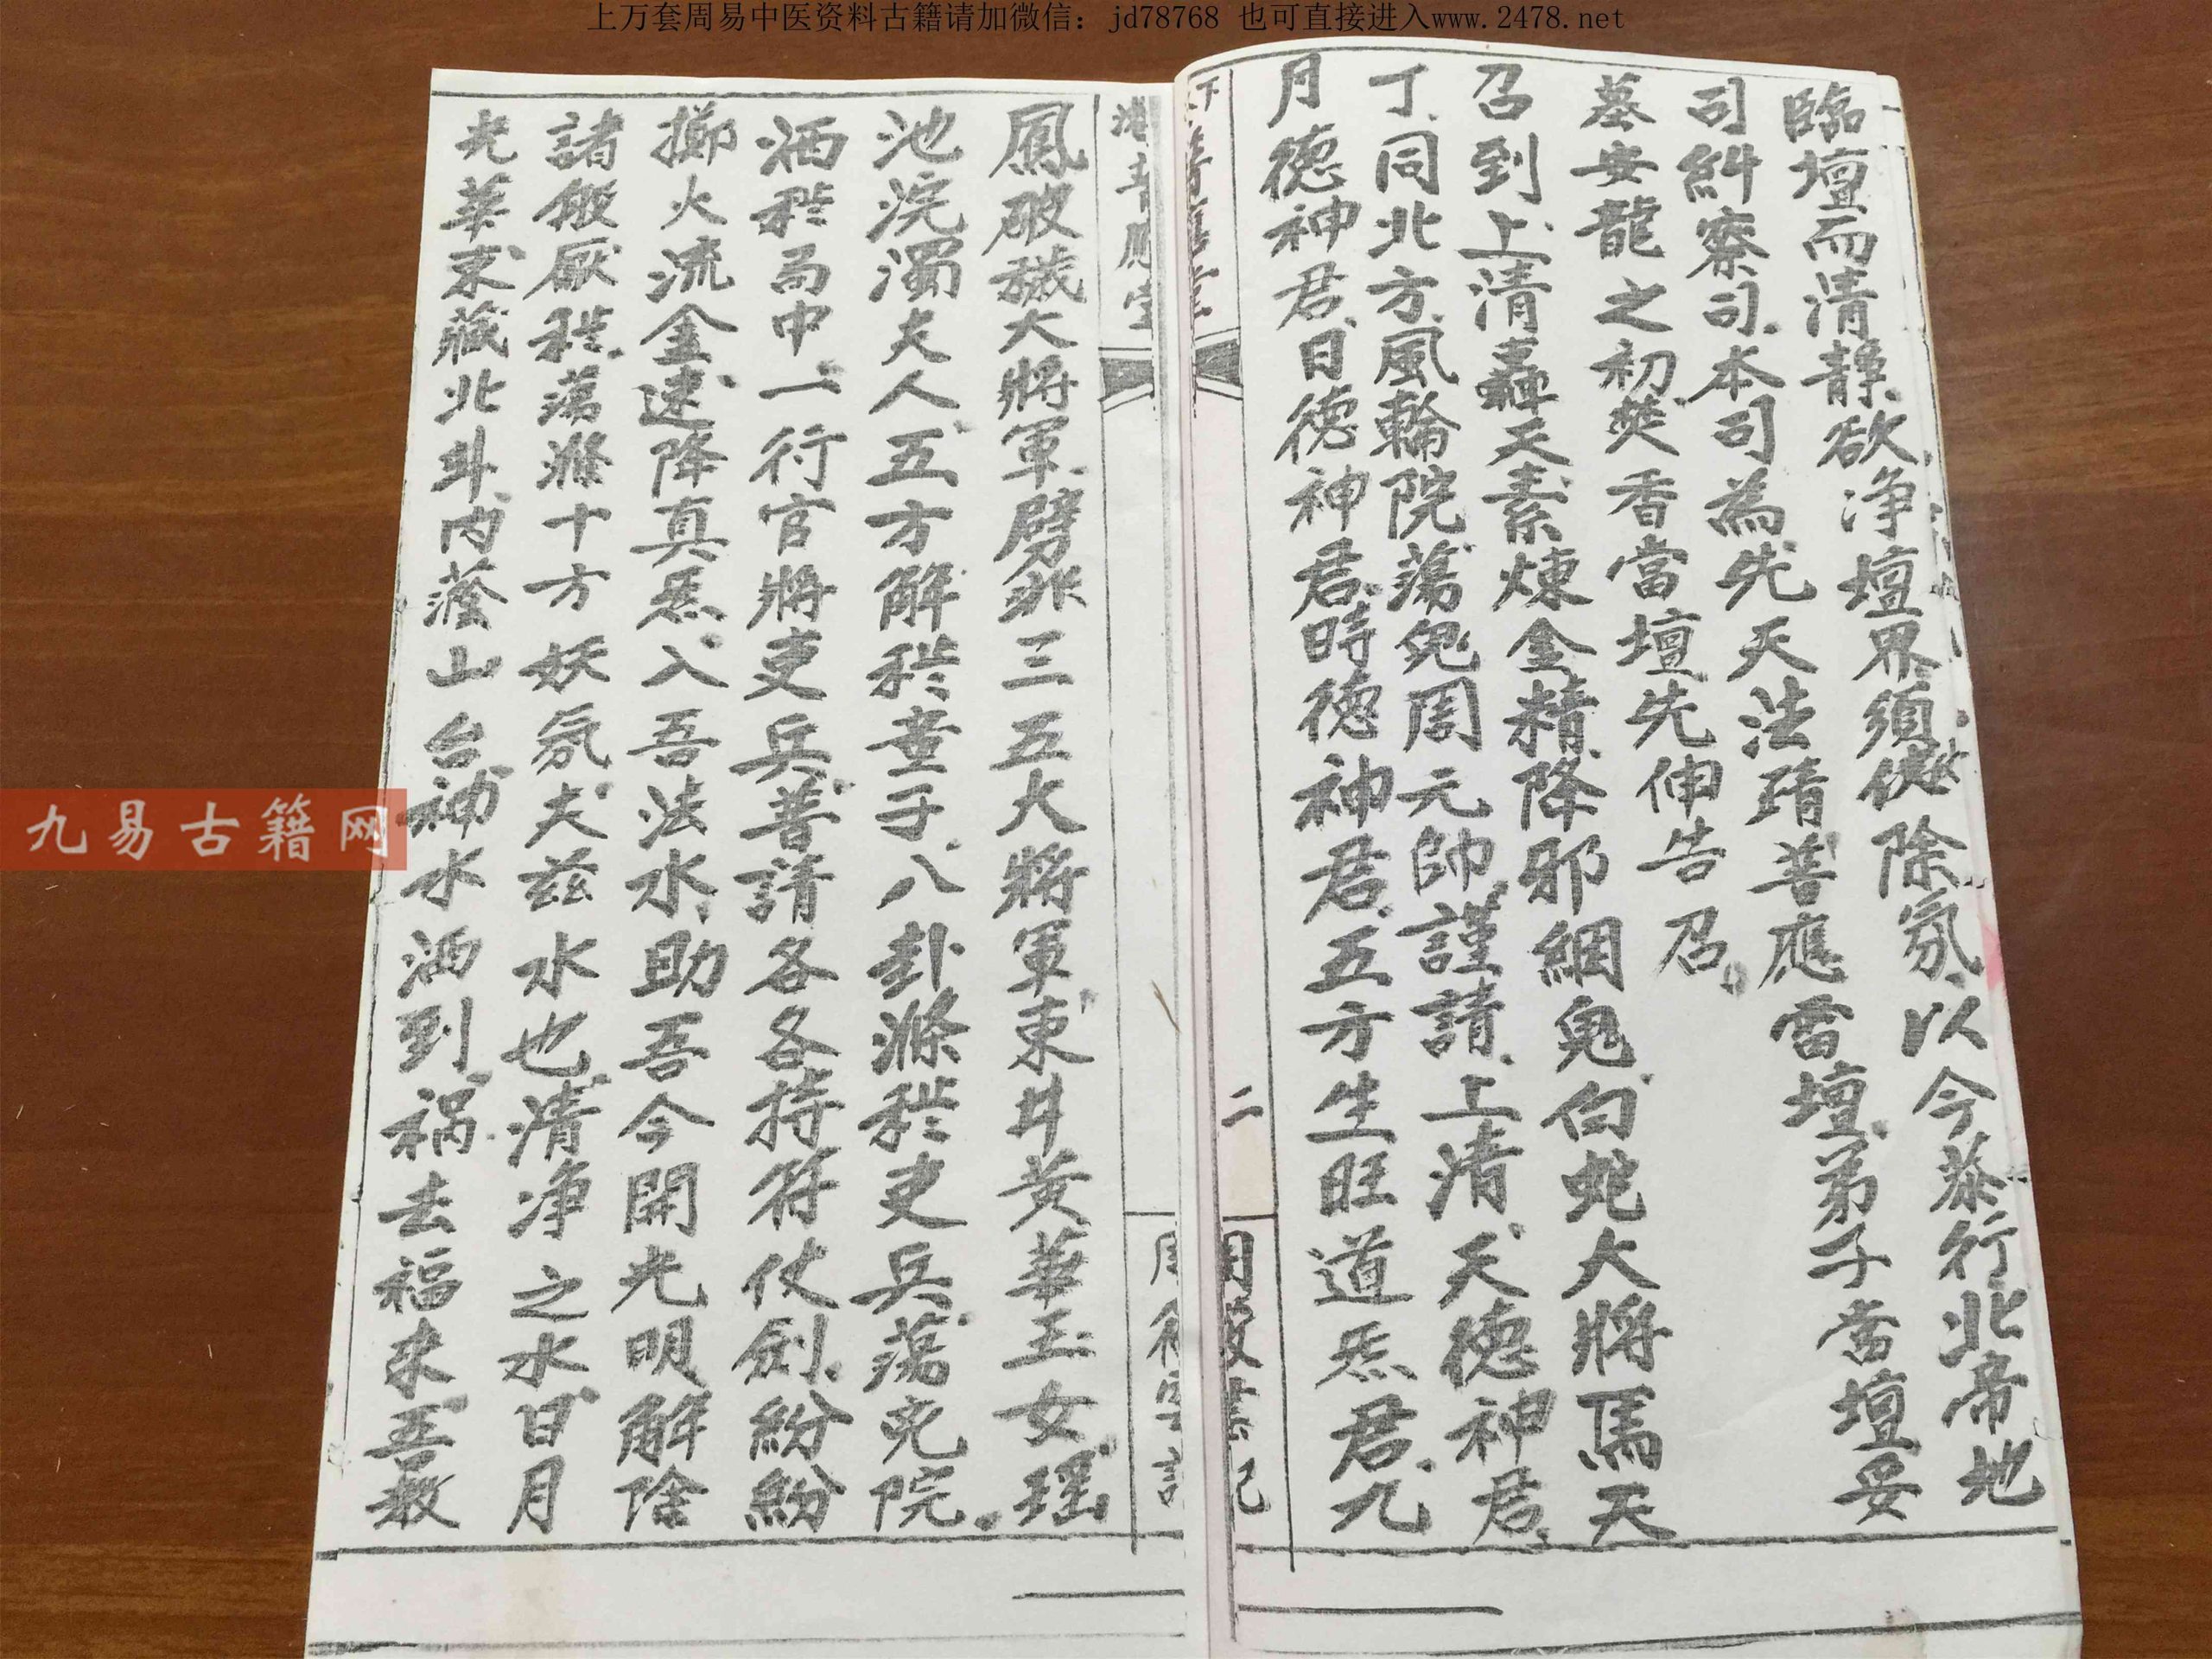 上万套周易中医资料古籍请加微信：jd78768 也可直接进入www.2478.net
臨壇而清靜欲净壇界須從除氛以今恭行北帝地
司糾察司本司為先天法靖善應雷壇弟子當壇妥
墓安龍之初焚香當壇先伸告召
召到上清轟天素煉金精降邪綑鬼白蛇大將馬天
丁同北方風輪院蕩兇周元帥謹請上清天德神君
月德神君日德神君時德神君五方生旺道炁君九
二
鳳破穢大將軍劈非三五大將軍東井黃華玉女瑶
池浣濁夫人五方解秽童子八卦滌秽吏兵蕩兇院
洒秽局中一行官將吏兵普請各各持符仗劍紛紛
擲火流金速降真炁入吾法水助吾今開光明解除
諸般厭秽蕩滌十方妖氛夫茲水也清净之水日月
光華末藏北斗内薩山台神水洒到祸去福來吾教
九易古籍网